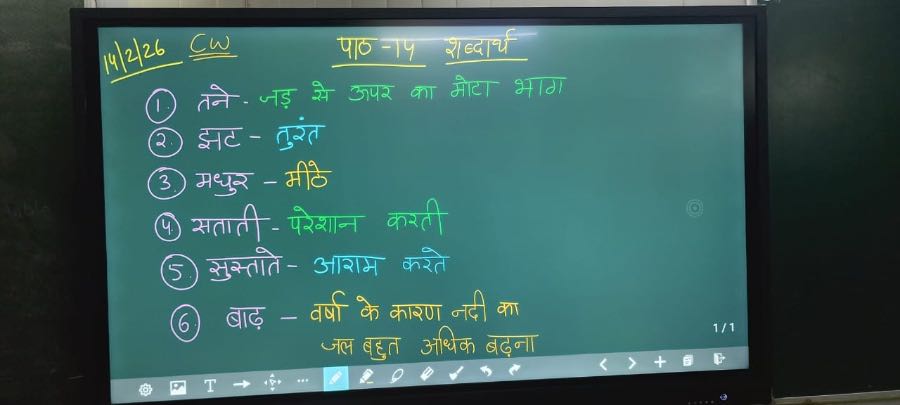 14/2/26 CW पाठ-१५ शब्दार्थ
1. तने - जड़ से ऊपर का मोटा भाग
2. झट - तुरंत
3. मधुर - मीठे
4. सताती - परेशान करती
5. सुस्ताते - आराम करते
6. बाढ़ - वर्षा के कारण नदी का
जल बहुत अधिक बढ़ना
1/1